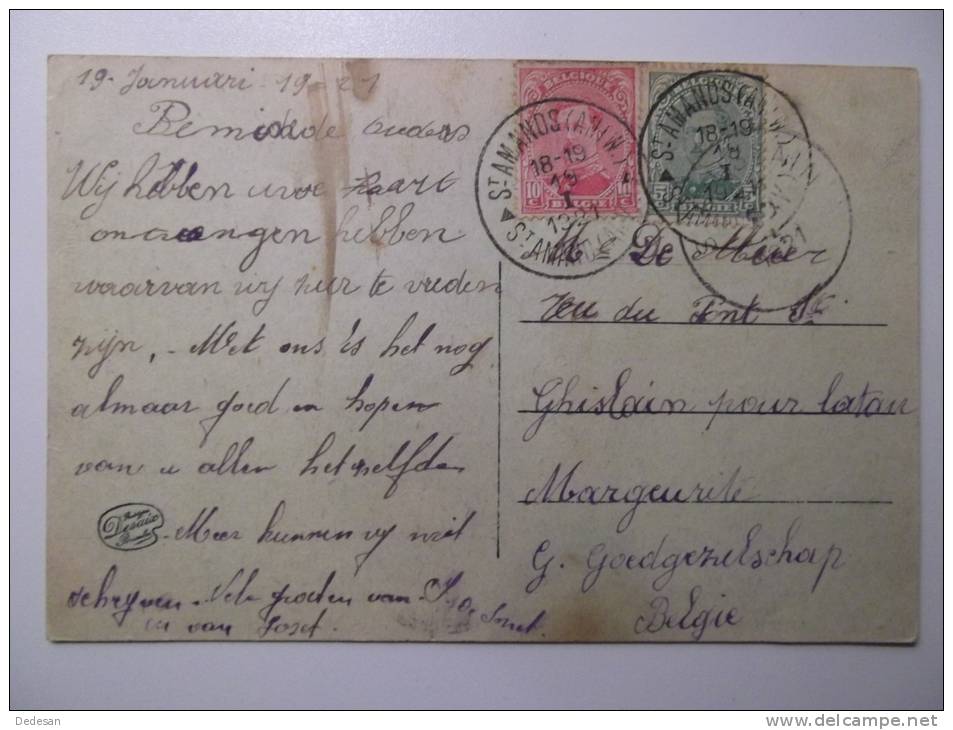 19- Januari 19-21
Beminde ouders
Wij hebben uwe kaart
ontvangen hebben
waarvan wij zeer te vreden
zijn, - Met ons is het nog
almaar goed en hopen
van u allen hetzelfden
- Meer kunnen wij niet
schrijven - Vele groeten van
en van Josef.
BELGIQUE
10 C
BELGIË
ST AMANDS (ANTW.)
18-19
I
1921
BELGIQUE
ST AMANDS (ANTW.)
18-19
I
De Meier
du Pont St
Ghislain pour latau
Margeurite
G. Goedgezelschap
Belgie
Dedesan
http://www.delcampe.net